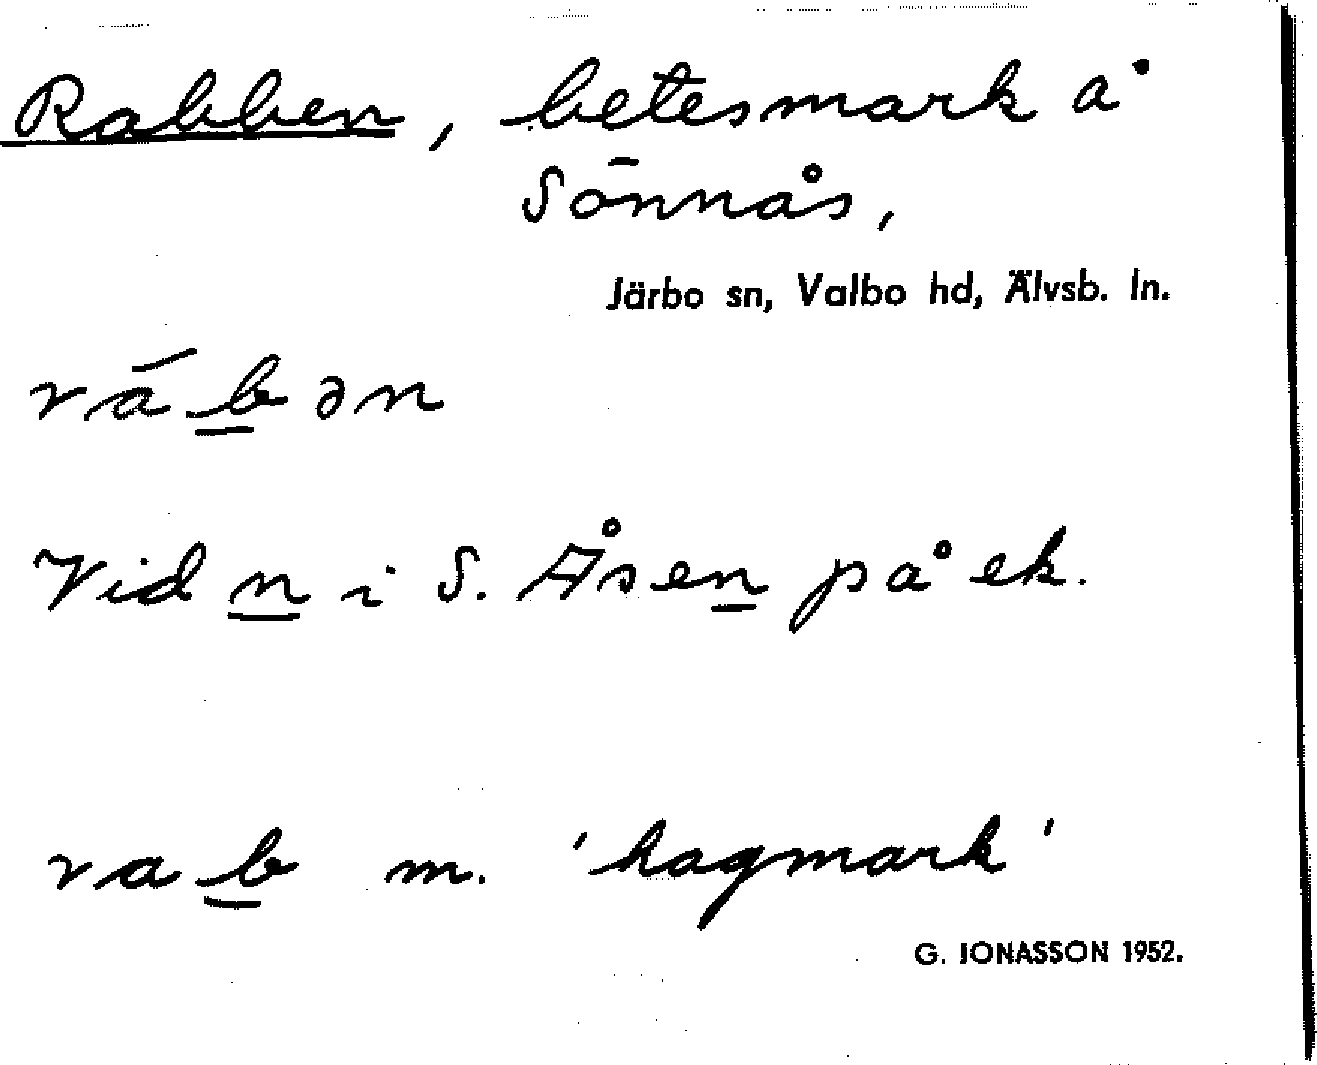 Rabben, betesmark å
Sönnås,
Järbo sn, Valbo hd, Älvsb. ln.
rábən
Vid n i S. Åsen på ek.
rab m. 'hagmark'
G. JONASSON 1952.